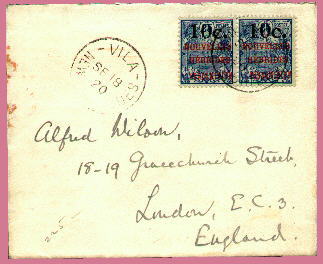 10c. 10c.
NOUVELLES NOUVELLES
HEBRIDES HEBRIDES
VILA
SE 18
20
Alfred Wilson,
18-19 Gracechurch Street,
London, E.C. 3.
England.